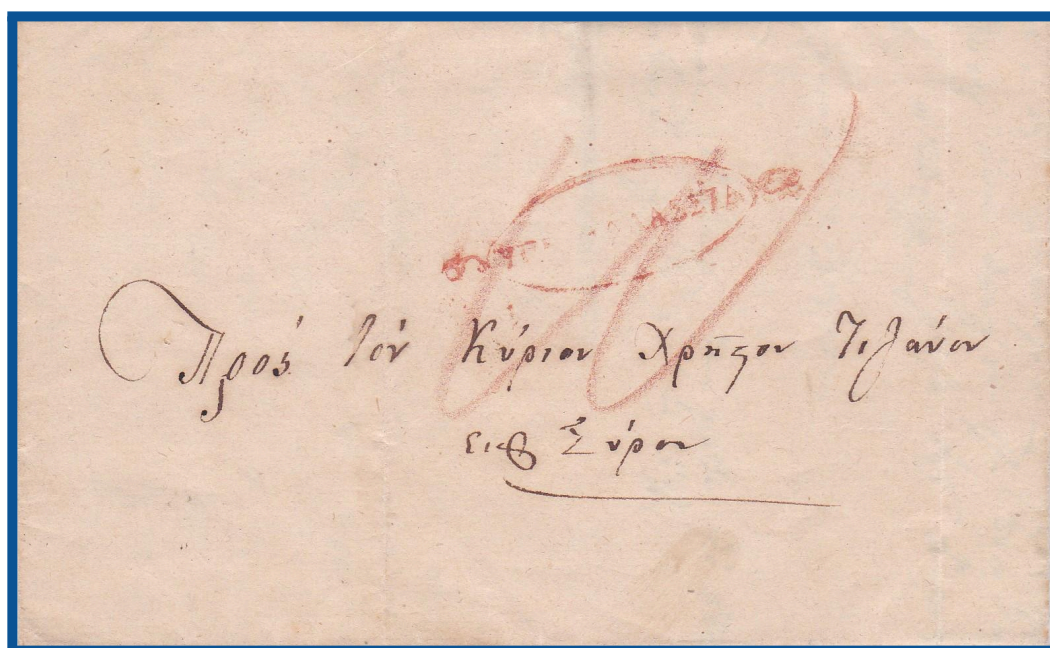 Πρός τόν Κύριον Χρῆϛον Τιτάνον
εἰς Σύρον